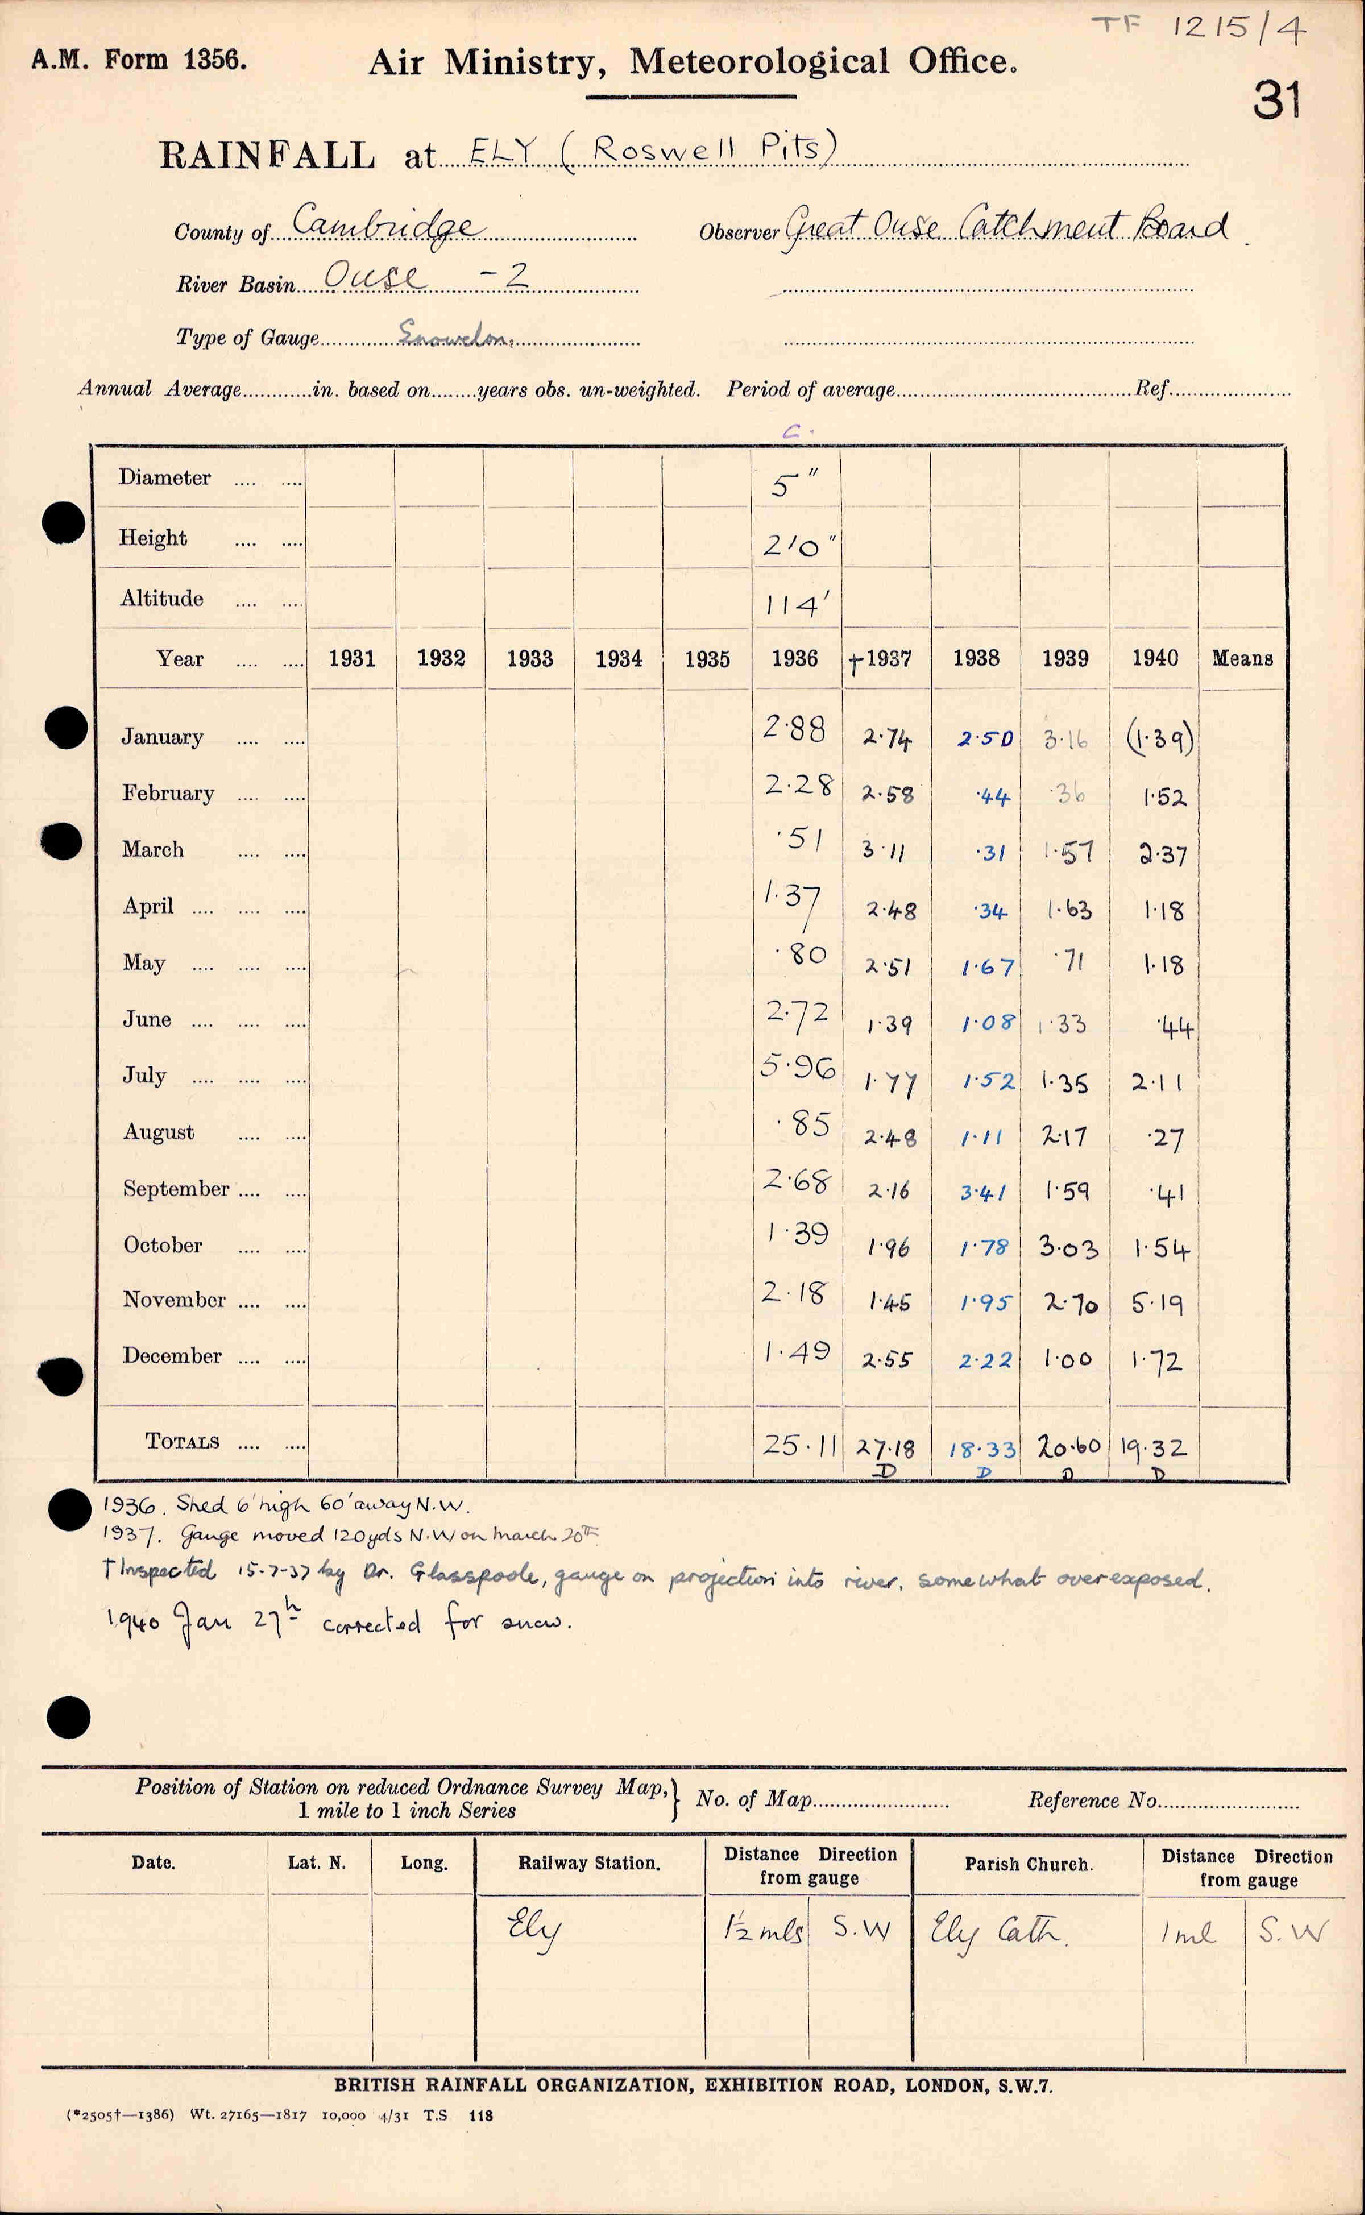 TF 1215/4
A.M. Form 1356. Air Ministry, Meteorological Office.
31
RAINFALL at ELY (Roswell Pits)
County of Cambridge Observer Great Ouse Catchment Board
River Basin Ouse -2
Type of Gauge Snowdon
Annual Average in. based on years obs. un-weighted. Period of average Ref.
C.
Diameter 5"
Height 2'0"
Altitude 114'
Year 1931 1932 1933 1934 1935 1936 †1937 1938 1939 1940 Means
January 2.88 2.74 2.50 3.16 (1.39)
February 2.28 2.58 .44 .36 1.52
March .51 3.11 .31 1.57 2.37
April 1.37 2.48 .34 1.63 1.18
May .80 2.51 1.67 .71 1.18
June 2.72 1.39 1.08 1.33 .44
July 5.96 1.77 1.52 1.35 2.11
August .85 2.48 1.11 2.17 .27
September 2.68 2.16 3.41 1.59 .41
October 1.39 1.96 1.78 3.03 1.54
November 2.18 1.45 1.95 2.70 5.19
December 1.49 2.55 2.22 1.00 1.72
TOTALS 25.11 27.18 18.33 20.60 19.32
D D D D
1936. Shed 6' high 60' away N.W.
1937. Gauge moved 120yds N.W on March 20th
† Inspected 15-7-37 by Dr. Glasspoole, gauge on projection into river, somewhat overexposed.
1940 Jan 27th corrected for snow.
Position of Station on reduced Ordnance Survey Map, 1 mile to 1 inch Series } No. of Map Reference No.
Date. Lat. N. Long. Railway Station. Distance Direction from gauge Parish Church. Distance Direction from gauge
Ely 1½ mls S.W Ely Cath. 1 ml S.W
BRITISH RAINFALL ORGANIZATION, EXHIBITION ROAD, LONDON, S.W.7.
(*2505†—1386) Wt. 27165—1817 10,000 4/31 T.S 118